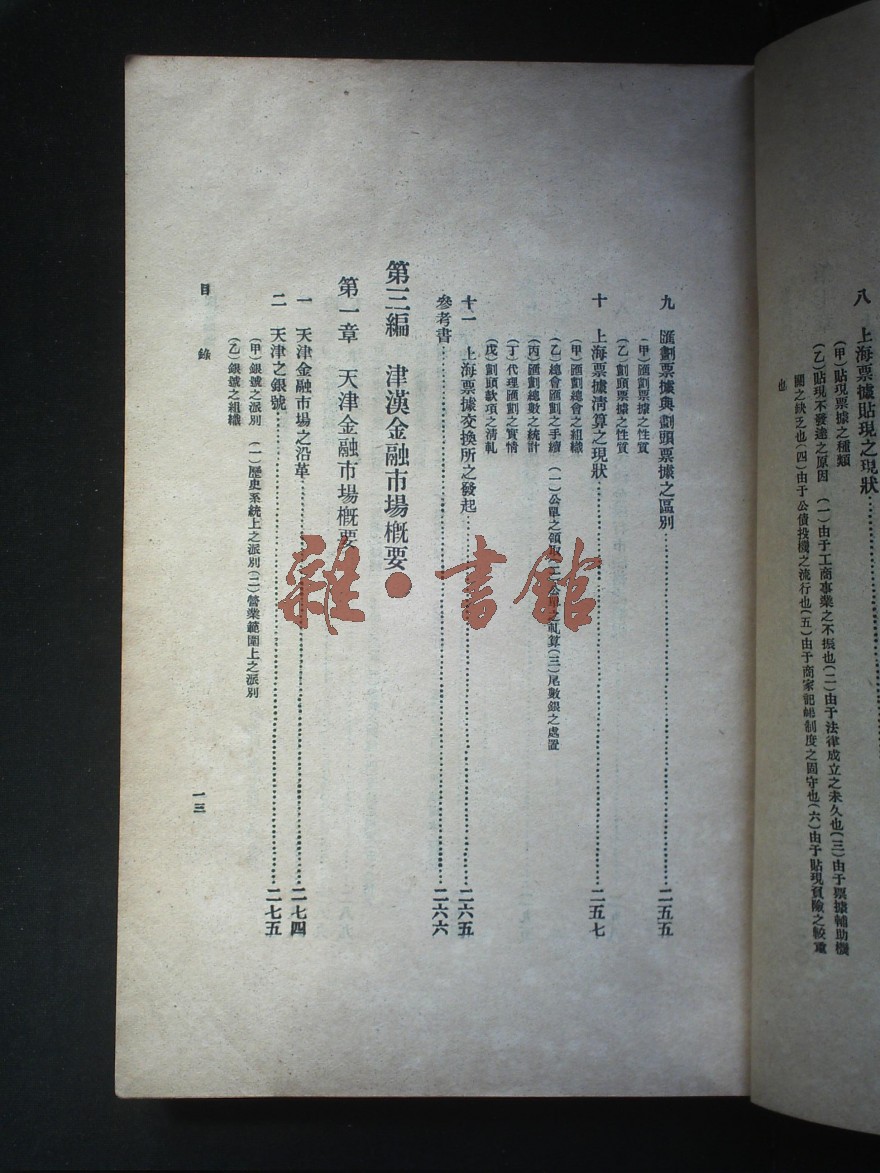 八　上海票據貼現之現狀
（甲）貼現票據之種類
（乙）貼現不發達之原因　（一）由于工商事業之不振也（二）由于法律成立之未久也（三）由于票據輔助機
關之缺乏也（四）由于公債投機之流行也（五）由于商家記帳制度之固守也（六）由于貼現貨險之較重
也
九　匯劃票據與劃頭票據之區別……二五五
（甲）匯劃票據之性質
（乙）劃頭票據之性質
十　上海票據清算之現狀……二五七
（甲）匯劃總會之組織
（乙）總會匯劃之手續　（一）公單之領取（二）公單之軋算（三）尾數銀之處置
（丙）匯劃總數之統計
（丁）代理匯劃之實情
（戊）劃頭款項之清軋
十一　上海票據交換所之發起……二六五
參考書……二六六
第三編　津漢金融市場概要
第一章　天津金融市場概要
一　天津金融市場之沿革……二七四
二　天津之銀號……二七五
（甲）銀號之派別　（一）歷史系統上之派別（二）營業範圍上之派別
（乙）銀號之組織
目　錄
一三
雜·書館